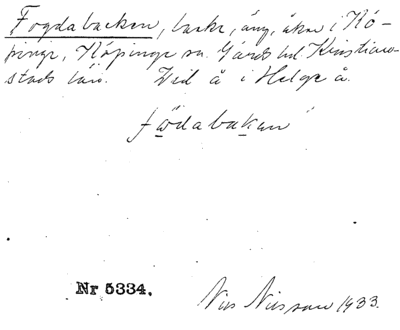 Fogdabacken, backe, äng, åker i Kö-
pinge, Köpinge sn. Gärds hd. Kristian-
stads län. Vid å i Helge å.
födabakan
Nr 5334.
Nils Nilsson 1933.